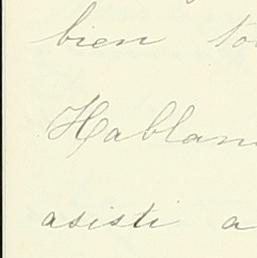 bien to
Hablan
asisti a